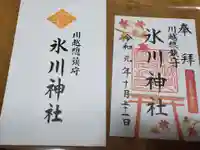 川越總鎮守
氷川神社
奉拝
川越總鎮守
氷川神社
令和元年十月